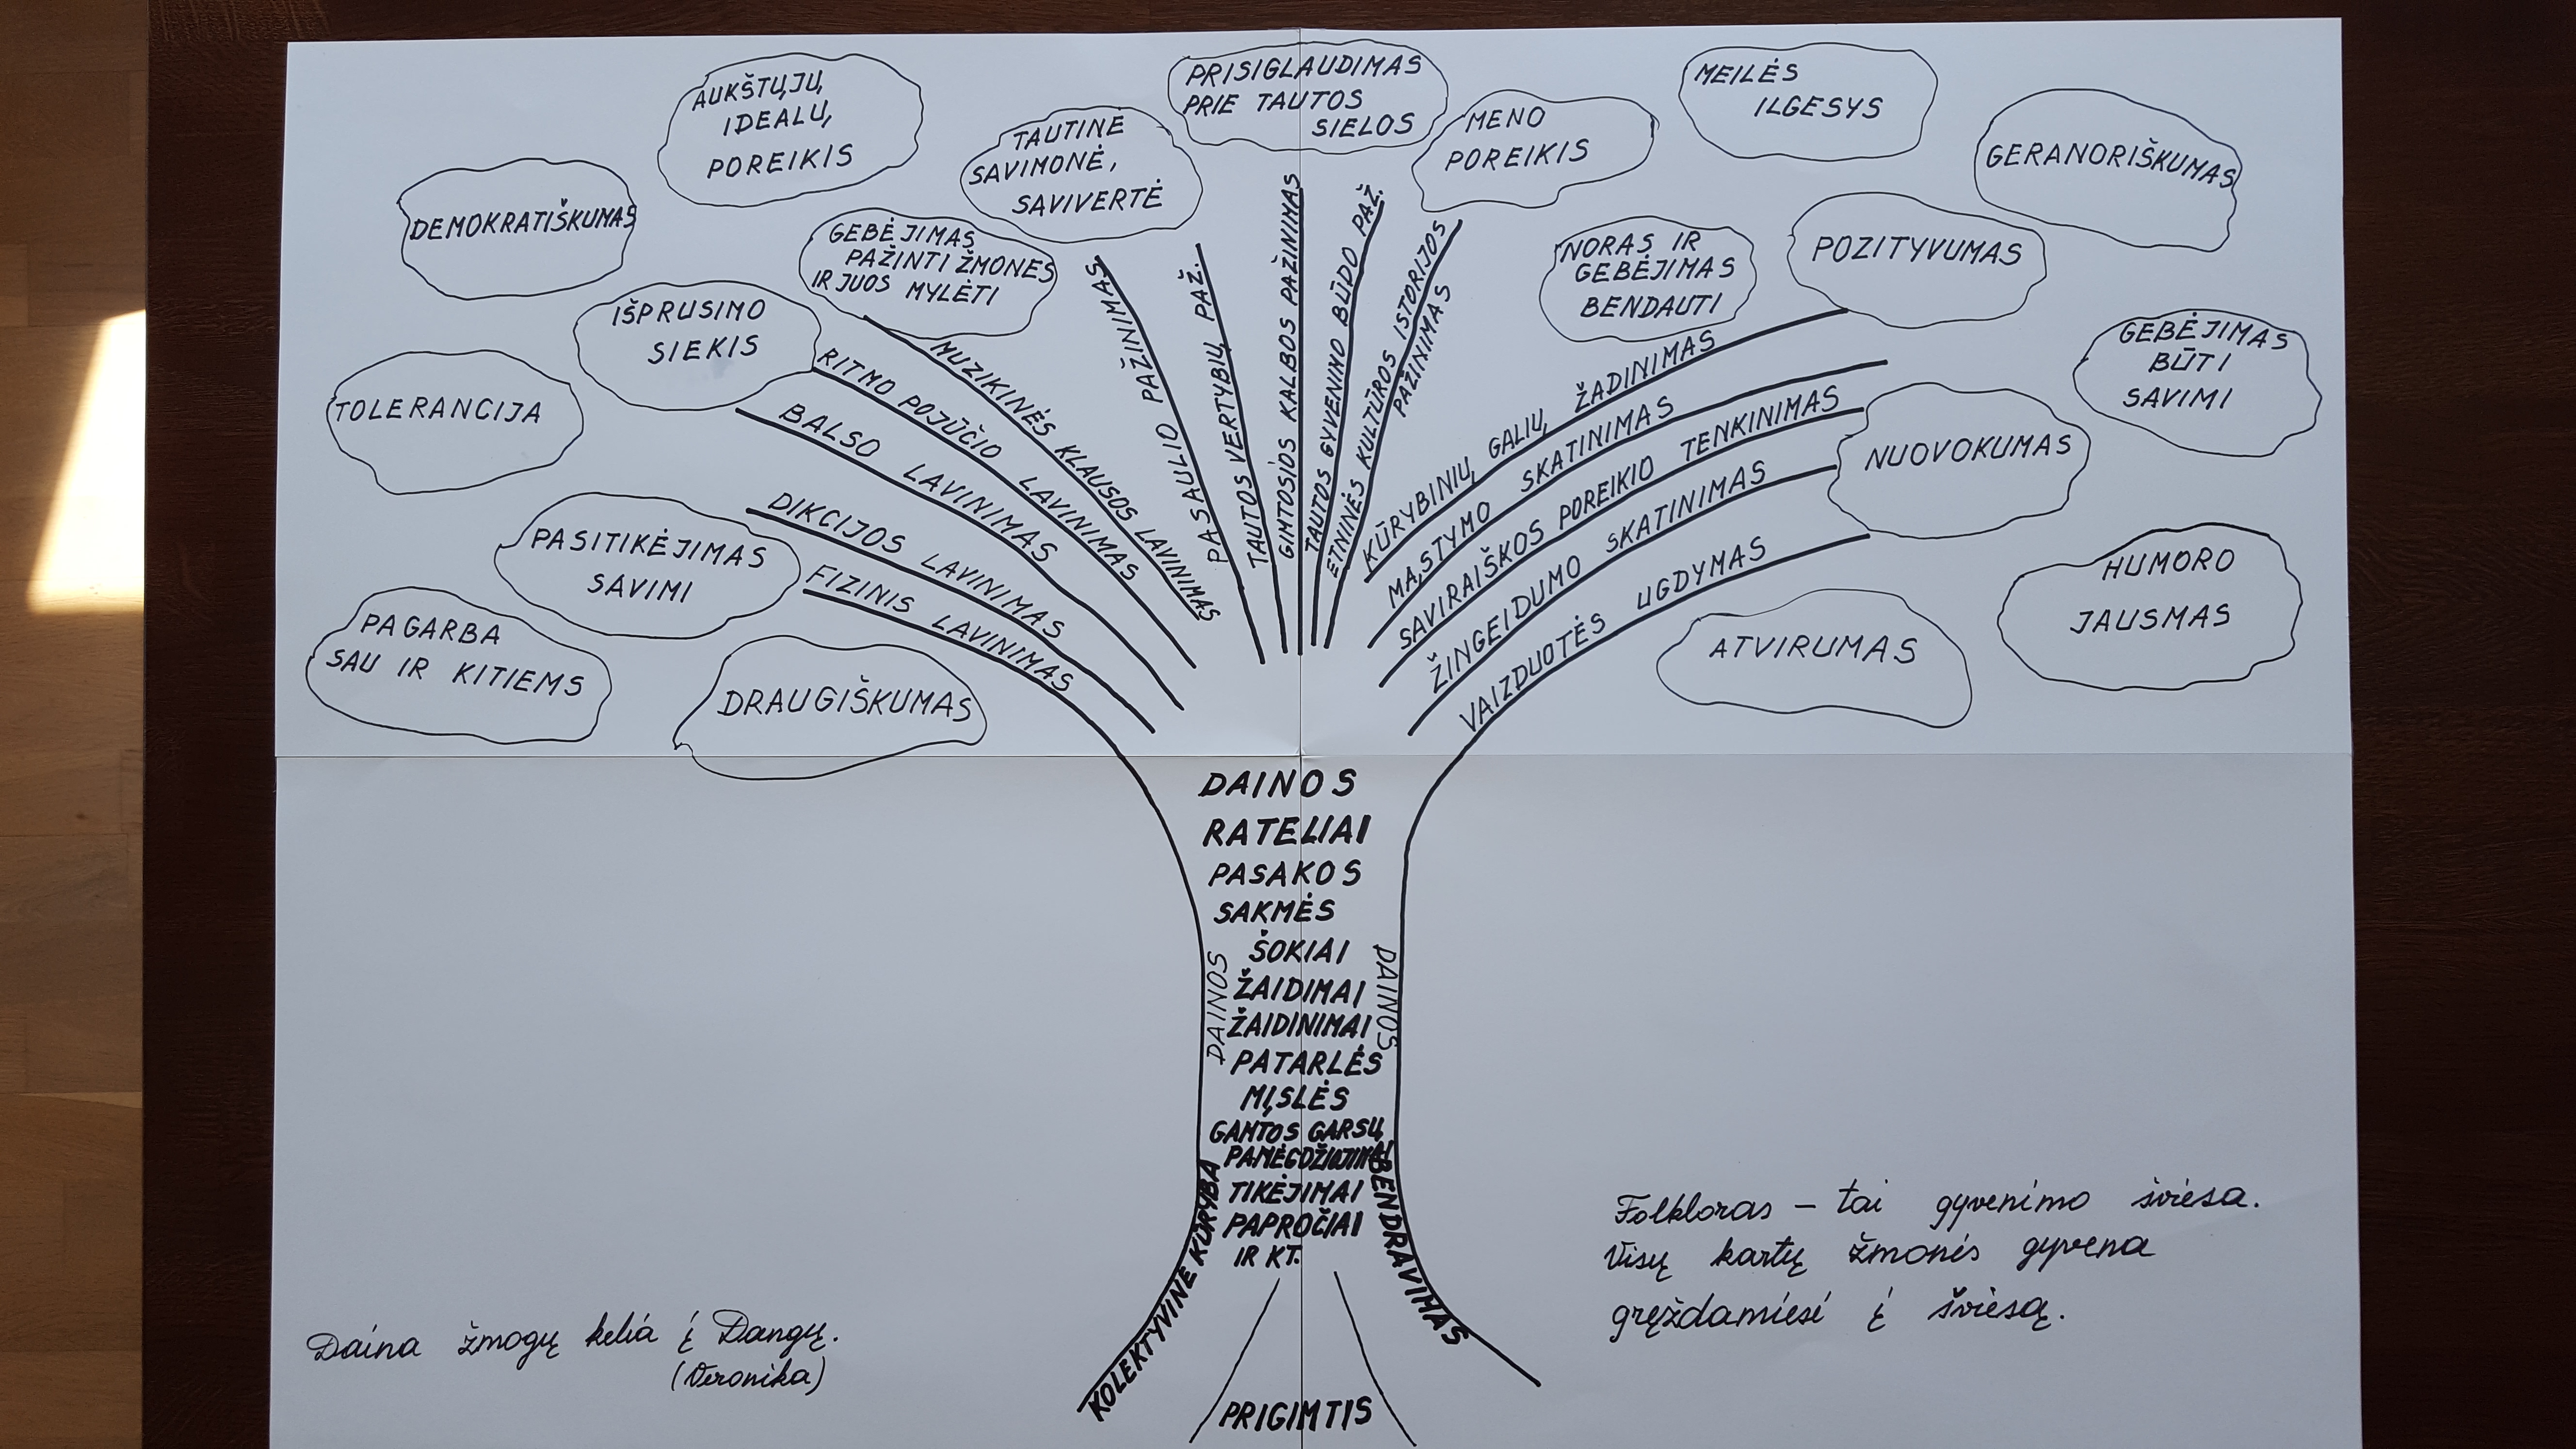 AUKŠTŲJŲ
IDEALŲ
POREIKIS
PRISIGLAUDIMAS
PRIE TAUTOS
SIELOS
MEILĖS
ILGESYS
TAUTINĖ
SAVIMONĖ,
SAVIVERTĖ
MENO
POREIKIS
GERANORIŠKUMAS
DEMOKRATIŠKUMAS
GEBĖJIMAS
PAŽINTI ŽMONES
IR JUOS MYLĖTI
NORAS IR
GEBĖJIMAS
BENDAUTI
POZITYVUMAS
IŠPRUSIMO
SIEKIS
GEBĖJIMAS
BŪTI
SAVIMI
TOLERANCIJA
NUOVOKUMAS
PASITIKĖJIMAS
SAVIMI
HUMORO
JAUSMAS
PAGARBA
SAU IR KITIEMS
DRAUGIŠKUMAS
ATVIRUMAS
FIZINIS LAVINIMAS
DIKCIJOS LAVINIMAS
BALSO LAVINIMAS
RITMO POJŪČIO LAVINIMAS
MUZIKINĖS KLAUSOS LAVINIMAS
PASAULIO PAŽINIMAS
TAUTOS VERTYBIŲ PAŽ.
GIMTOSIOS KALBOS PAŽINIMAS
TAUTOS GYVENIMO BŪDO PAŽ.
ETNINĖS KULTŪROS ISTORIJOS
PAŽINIMAS
KŪRYBINIŲ GALIŲ ŽADINIMAS
MĄSTYMO SKATINIMAS
SAVIRAIŠKOS POREIKIO TENKINIMAS
ŽINGEIDUMO SKATINIMAS
VAIZDUOTĖS UGDYMAS
DAINOS
RATELIAI
PASAKOS
SAKMĖS
ŠOKIAI
ŽAIDIMAI
ŽAIDINIMAI
PATARLĖS
MĮSLĖS
GAMTOS GARSŲ
PAMĖGDŽIOJIMAI
TIKĖJIMAI
PAPROČIAI
IR KT.
DAINOS
DAINOS
KOLEKTYVINĖ KŪRYBA
BENDRAVIMAS
PRIGIMTIS
Daina žmogų kelia į Dangų.
(Veronika)
Folkloras – tai gyvenimo šviesa.
Visų kartų žmonės gyvena
gręždamiesi į šviesą.